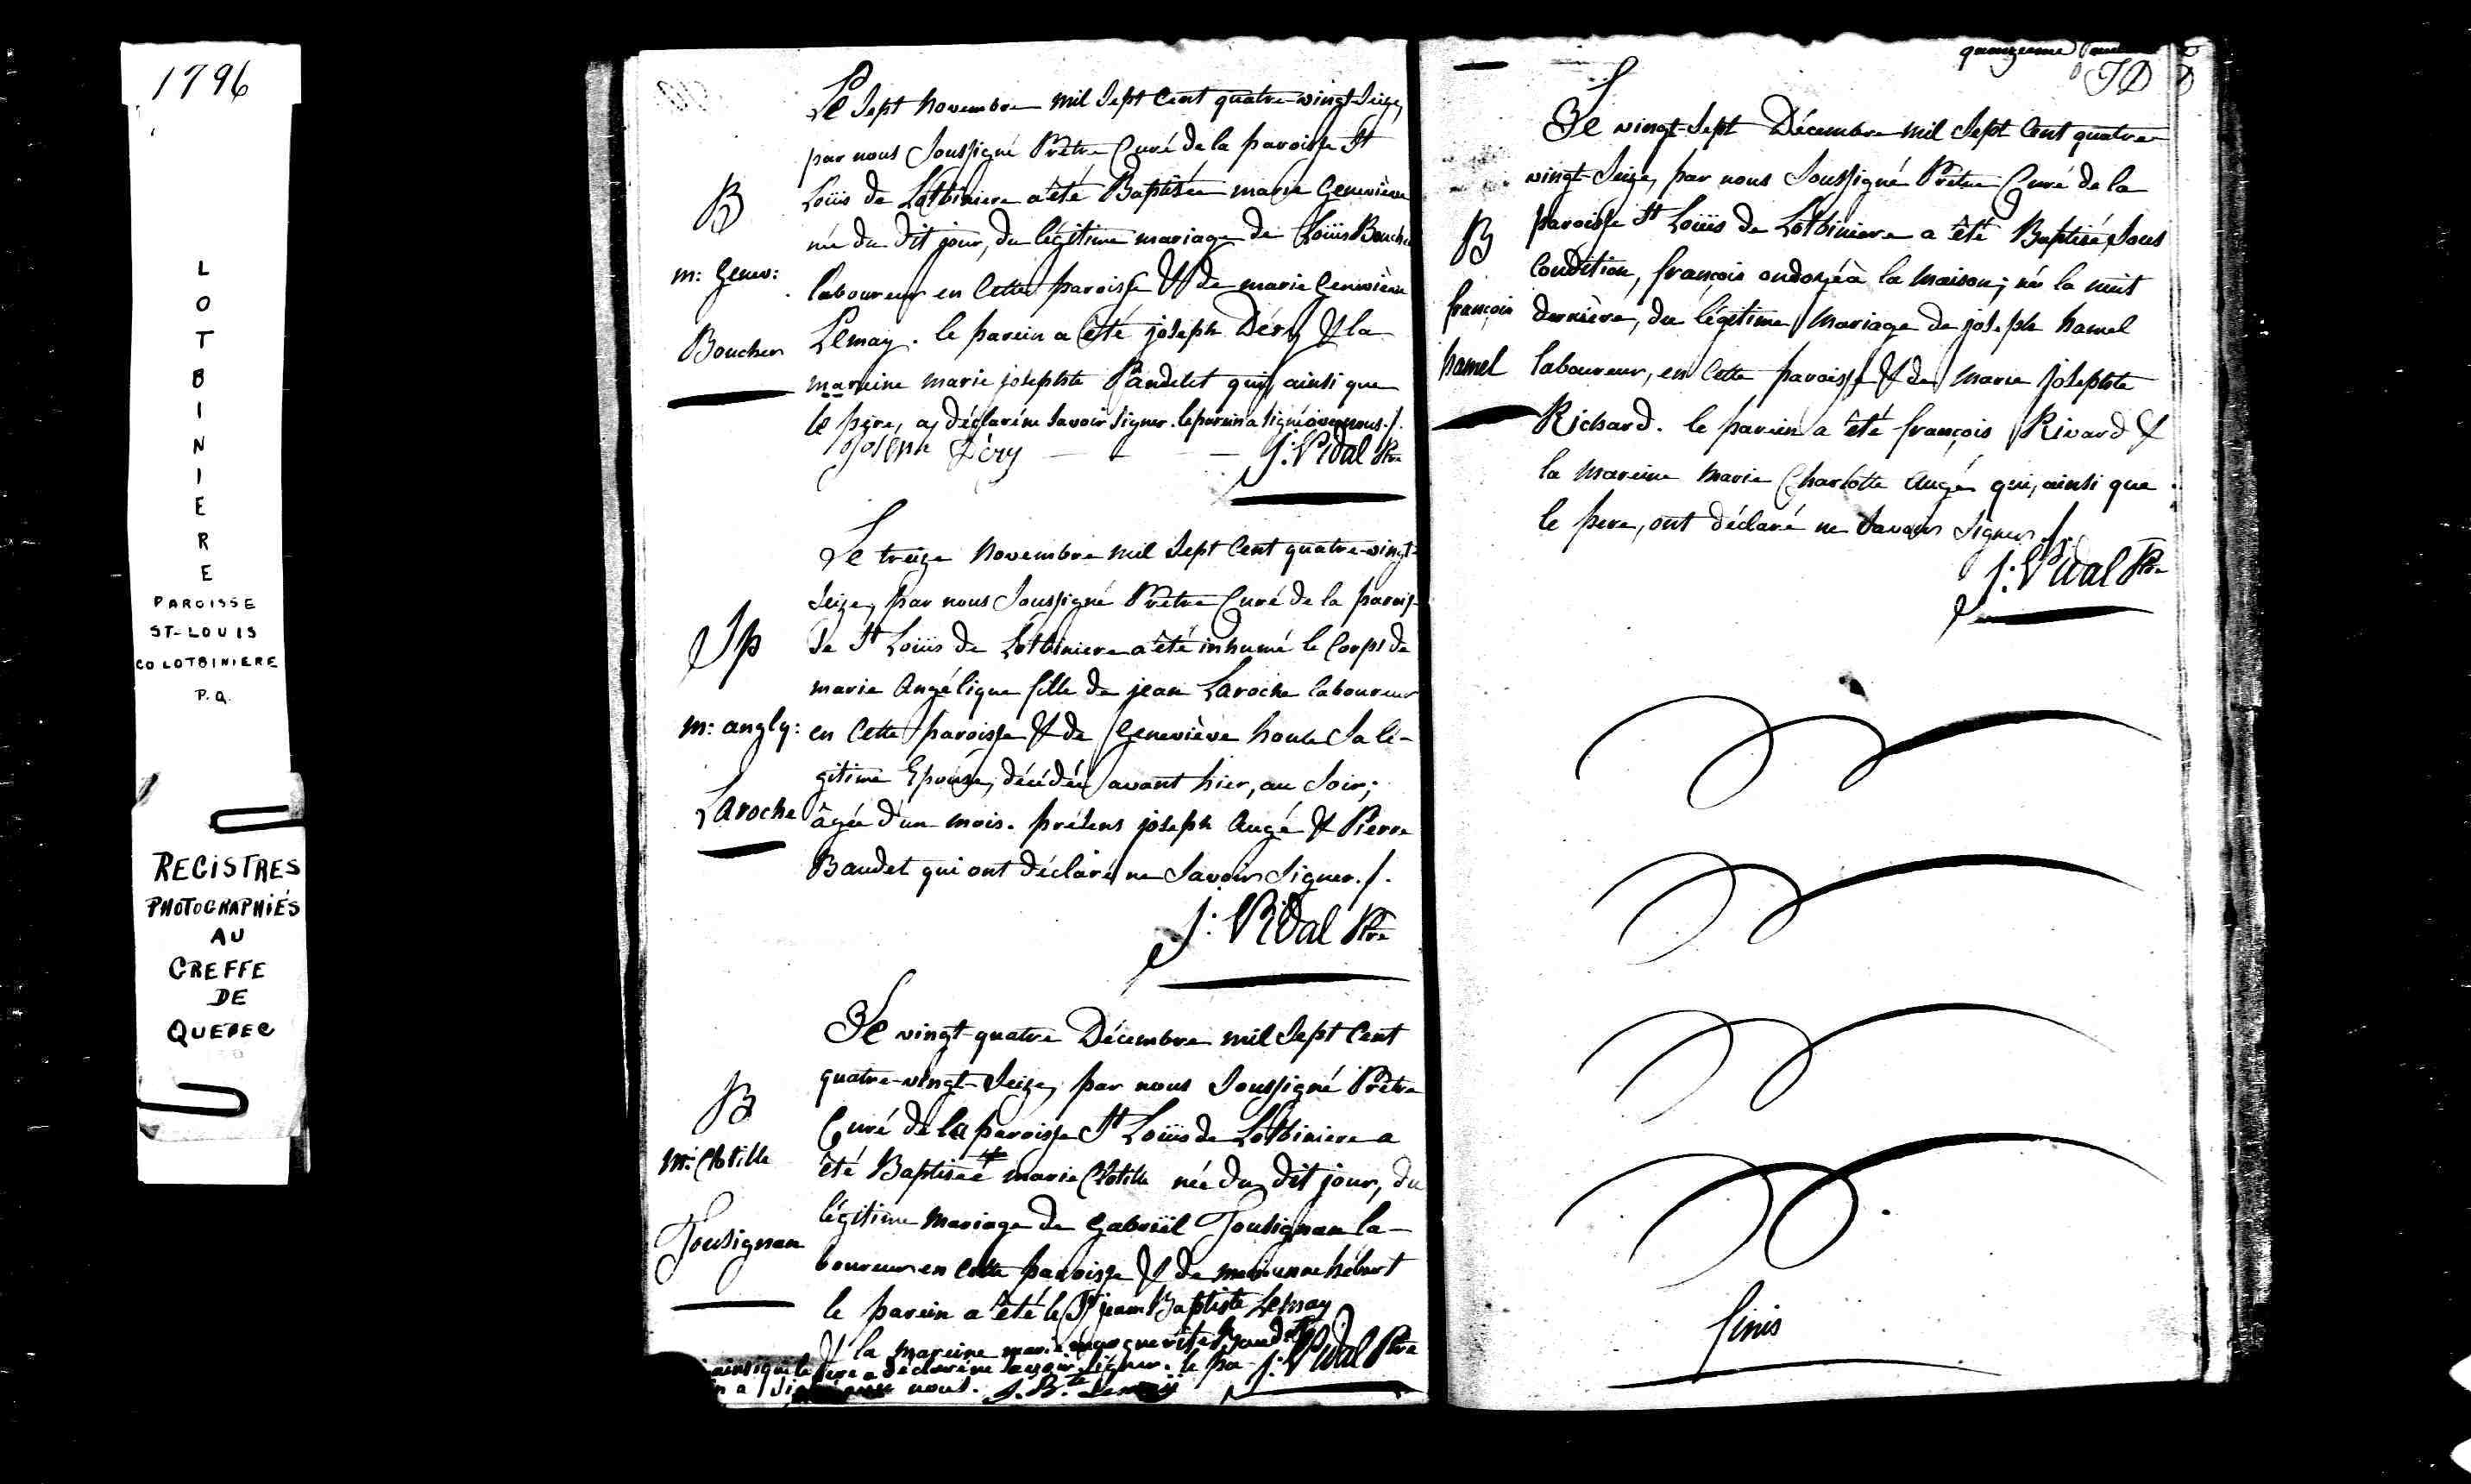 1796
L
O
T
B
I
N
I
E
R
E
PAROISSE
ST-LOUIS
CO LOTBINIERE
P.Q.
REGISTRES
PHOTOGRAPHIÉS
AU
GREFFE
DE
QUEBEC
Le Sept novembre mil Sept Cent quatre-vingt-Seize,
par nous Soussigné Prêtre Curé de la paroisse St
Loüis de Lotbiniere a été Baptisée marie Geneviève
née du dit jour, du légitime mariage de Loüis Boucher
laboureur en Cette paroisse & de marie Geneviève
Lemay. le parein a été joseph Déry & la
mareine marie josephte Baudet qui, ainsi que
le père, a déclaré ne Savoir Signer. le parein a Signé avec nous ./.
joseph Déry
J: Vidal Ptre
B
m: Genev:
Boucher
Le treize novembre mil Sept Cent quatre-vingt-
Seize, par nous Soussigné Prêtre Curé de la parois-
Se St Loüis de Lotbiniere a été inhumé le Corps de
marie Angélique fille de jean Laroche laboureur
en Cette paroisse & de Geneviève houle Sa lé-
gitime Epouse, décédée avant hier, au Soir;
âgée d'un mois. présens joseph Augé & Pierre
Baudet qui ont déclaré ne Savoir Signer ./.
J: Vidal Ptre
Sp
m: anglq:
Laroche
Le vingt-quatre Décembre mil Sept Cent
quatre-vingt-Seize, par nous Soussigné Prêtre
Curé de la paroisse St Loüis de Lotbiniere a
été Baptisée marie Clotille née du dit jour, du
légitime mariage de Gabriël Tousignan la-
boureur en Cette paroisse & de marianne hébert
le parein a été le Sr jean Baptiste Lemay
& la mareine marie marguerite Baudet
ainsi que le père a déclaré ne Savoir Signer. le pa-
nous. J. B.te Lemay
J: Vidal Ptre
B
m: Clotille
Tousignan
quinzieme
JD
Le vingt-Sept Décembre mil Sept Cent quatre
vingt-Seize, par nous Soussigné Prêtre Curé de la
paroisse St Loüis de Lotbiniere a été Baptisé, Sous
Condition, françois ondoyé à la maison; né la nuit
dernière, du légitime mariage de joseph hamel
laboureur, en Cette paroisse & de marie josephte
Richard. le parein a été françois Rivard &
la mareine marie Charlotte Augé qui, ainsi que
le pere, ont déclaré ne Savoir Signer ./.
J: Vidal Ptre
B
françois
hamel
finis